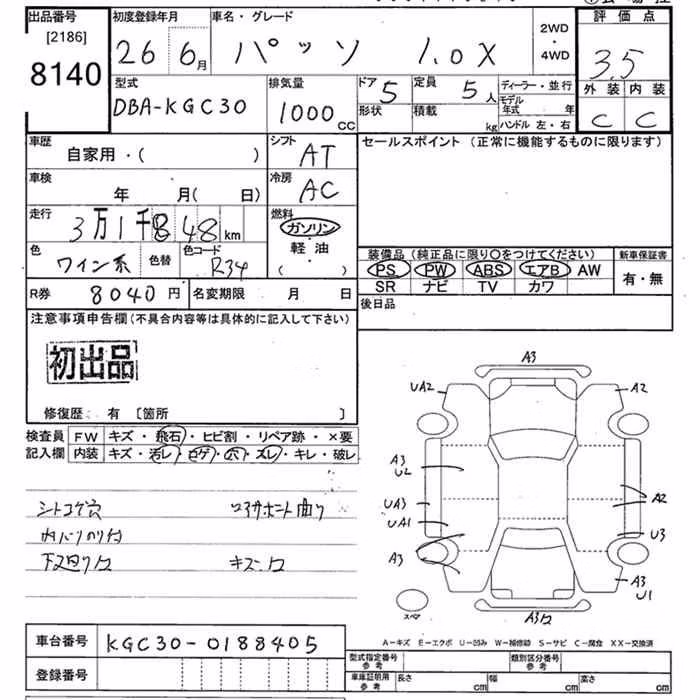 出品番号
[2186]
8140
初度登録年月
26 6月
車名・グレード
パッソ 1.0X
2WD
・
4WD
評価点
3.5
外装 内装
C C
型式
DBA-KGC30
排気量
1000cc
ドア 5
形状
定員 5人
積載 kg
ディーラー・並行
モデル年式 年
ハンドル 左・右
車歴
自家用・( )
シフト
AT
セールスポイント (正常に機能するものに限ります)
車検
年 月( 日)
冷房
AC
走行
3万1千848km
燃料
ガソリン
・
軽油
・
( )
色
ワイン系
色替
色コード
R34
装備品 (純正品に限り○をつけてください)
新車保証書
PS PW ABS エアB AW
有・無
SR ナビ TV カワ
R券 8040円
名変期限 月 日
後日品
注意事項申告欄(不具合内容等は具体的に記入して下さい)
初出品
修復歴: 有 〔箇所 〕
検査員
記入欄
FW キズ・飛石・ヒビ割・リペア跡・×要
内装 キズ・汚レ・コゲ・穴・スレ・キレ・破レ
シートコゲ穴
内バリのり付
下廻りワ
キズ・ワ
A3
UA2
A2
A3
U2
UA3
UA1
A3
A2
U3
A3
U1
スペア
A-キズ E-エクボ U-凹み W-補修跡 S-サビ C-腐食 XX-交換済
車台番号
KGC30-0188405
登録番号
型式指定番号
参考
類別区分番号
参考
車庫証明用
参考
長さ cm
幅 cm
高さ cm